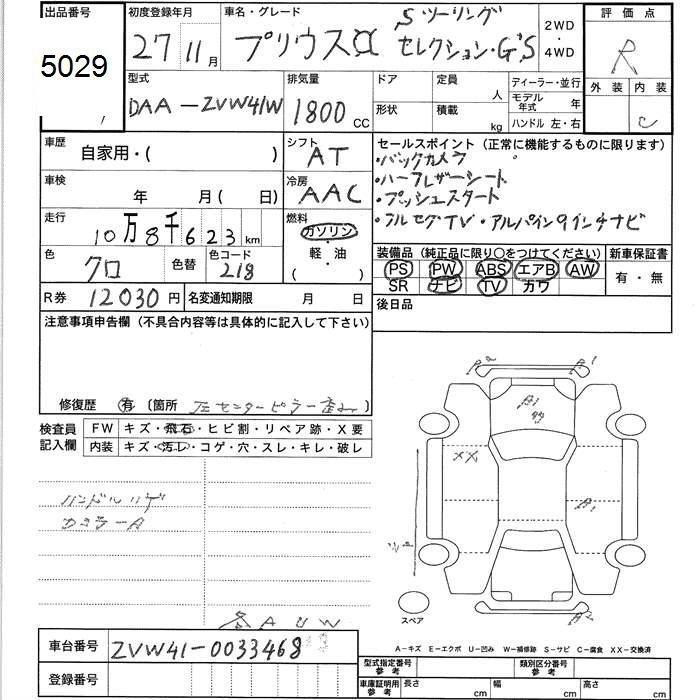 出品番号
5029
初度登録年月
27 11月
車名・グレード
プリウスα Sツーリング
セレクション・G'S
2WD
・
4WD
評価点
R
外装 内装
C
型式
DAA-ZVW41W
排気量
1800 CC
ドア 定員 人
形状 積載 kg
ディーラー・並行
モデル年式 年
ハンドル 左・右
車歴
自家用・( )
シフト
AT
セールスポイント (正常に機能するものに限ります)
・バックカメラ
・ハーフレザーシート
・プッシュスタート
・フルセグTV・アルパイン9インチナビ
車検
年 月( 日)
冷房
AAC
走行
10万8千623km
燃料
ガソリン
・軽・油
( ・ )
色
クロ
色替
色コード
218
装備品 (純正品に限り○をつけてください)
PS PW ABS エアB AW
SR ナビ TV カワ
新車保証書
有・無
R券 12030円
名変通知期限 月 日
後日品
注意事項申告欄 (不具合内容等は具体的に記入して下さい)
修復歴 有 〔箇所 左センターピラー歪み 〕
検査員
記入欄
FW キズ・飛石・ヒビ割・リペア跡・X要
内装 キズ・汚レ・コゲ・穴・スレ・キレ・破レ
ハンドルハゲ
各AUW
A2 A1
XX
A1
A2
スペア
A-キズ E-エクボ U-凹み W-補修跡 S-サビ C-腐食 XX-交換済
車台番号 ZVW41-0033468
登録番号
型式指定番号
参考
類別区分番号
参考
車庫証明用
参考
長さ cm 幅 cm 高さ cm